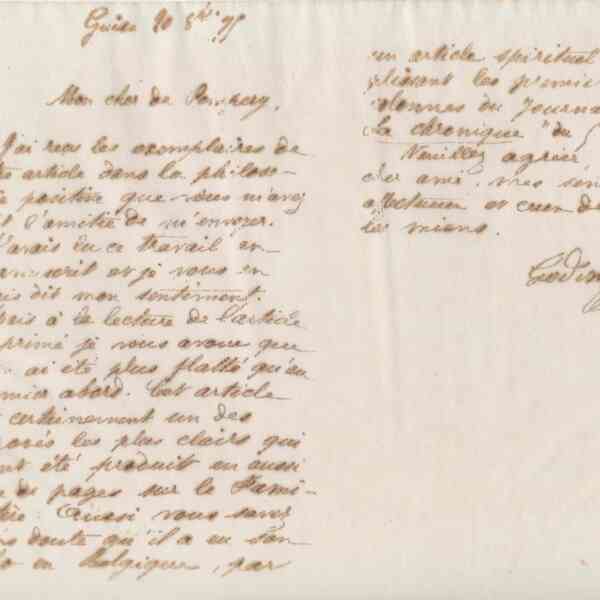 Guise 20 8bre 75
Mon cher de Pompery,
J'ai reçu les exemplaires de
tre article dans la philoso-
ie positive que vous m'avez
it l'amitié de m'envoyer.
J'avais lu ce travail en
anuscrit et je vous en
ais dit mon sentiment.
ais à la lecture de l'article
primé je vous avoue que
n ai été plus flatté qu'au
mier abord. Cet article
t certainement un des
posés les plus clairs qui
ent été produit en aussi
de pages sur le Fami-
tère. Aussi vous savez
ns doute qu'il a eu son
o en Belgique, par
un article spirituel
plissant les premiè
olonnes du Journa
La chronique" du
Veuillez agréer
cher ami, mes sen
affectueux et ceux de
les miens.
Godin